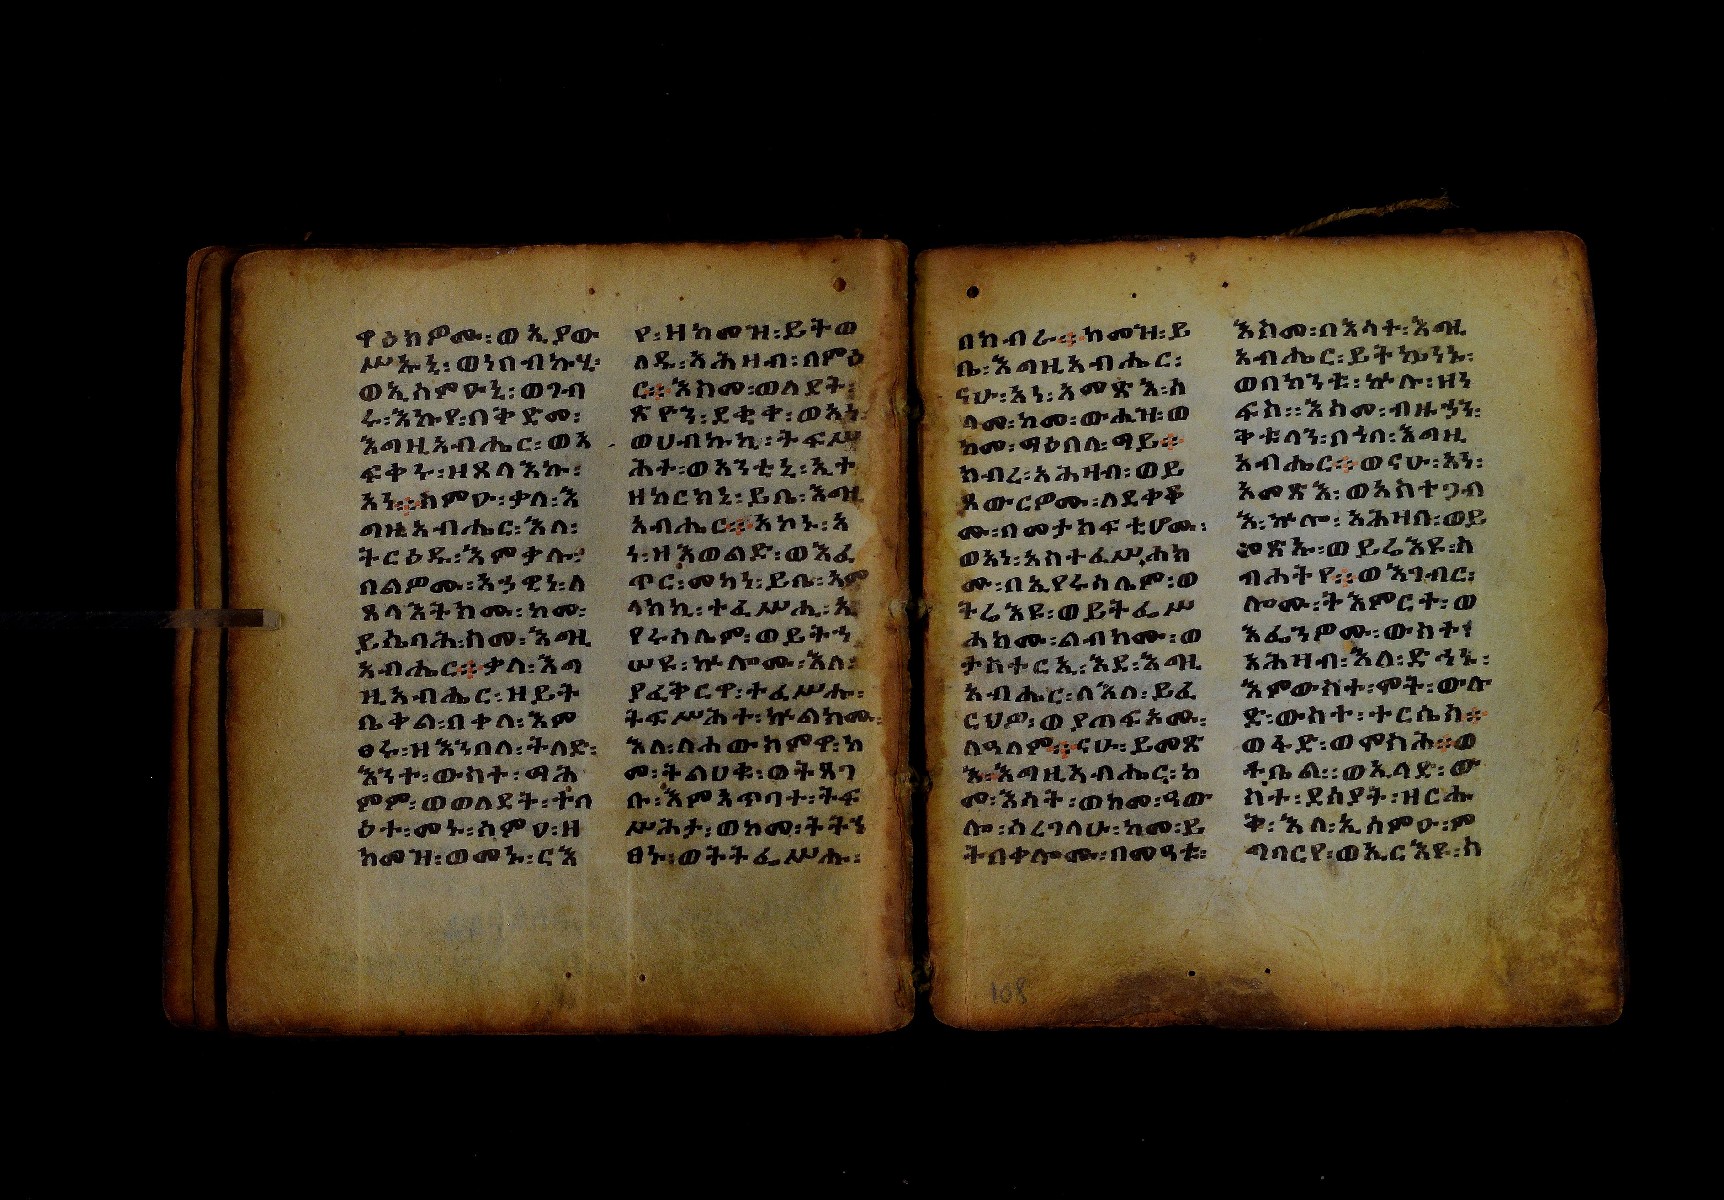 ዋዕከዎሙ፡ወኢያው
ሥኡኒ፡ወነበብኩሂ፡
ወኢሰምዑኒ፡ወገብ
ሩ፡እኩየ፡በቅድመ፡
እግዚአብሔር፡ወአ
ፍቀሩ፡ዘጸላእኩ፡
አነ።ስምዑ፡ቃለ፡እ
ግዚአብሔር፡እለ፡
ትርዕዱ፡እምቃሉ፡
በልዎሙ፡አኀዊነ፡ለ
ጸላእትክሙ፡ከመ፡
ይሴባሕ፡ስመ፡እግዚ
አብሔር።ቃለ፡እግ
ዚአብሔር፡ዘይት
ቤቀል፡በቀለ፡እም
ፅሩ፡ዘእንበለ፡ትለድ፡
እንተ፡ውስተ፡ማሕ
ምም፡ወወለደት፡ተባ
ዕተ፡መኑ፡ሰምዐ፡ዘ
ከመዝ፡ወመኑ፡ርእ
የ፡ዘከመዝ፡ይትወ
ለዱ፡አሕዛብ፡በምዕ
ር።እስመ፡ወለደት፡
ጽዮን፡ደቂቀ፡ወአነ፡
ወሀብኩኪ፡ትፍሥ
ሕት፡ወአንቲኒ፡ኢተ
ዘከርክኒ፡ይቤ፡እግዚ
አብሔር።አኮኑ፡አ
ነ፡ዘአወልድ፡ወእፈ
ጥር፡መካነ፡ይቤ፡አም
ላክኪ፡ተፈሥሒ፡ኢ
የሩሳሌም፡ወይትኀ
ሠዩ፡ኵሎሙ፡እለ፡
ያፈቅርዋ፡ተፈሥሑ፡
ትፍሥሕተ፡ኵልክሙ፡
እለ፡ላሕውክምዋ፡ከ
መ፡ትልሀቁ፡ወትጸገ
ቡ፡እምአጥባተ፡ትፍ
ሥሕታ፡ወከመ፡ትትኀ
ፀኑ፡ወትትፌሥሑ፡
በክብራ።ከመዝ፡ይ
ቤ፡እግዚአብሔር፡
ናሁ፡አነ፡አመጽእ፡ሰ
ላመ፡ከመ፡ውሒዝ፡ወ
ከመ፡ማዕበለ፡ማይ።
ክብረ፡አሕዛብ፡ወይ
ጸውርዎሙ፡ለደቀቆ
ሙ፡በመታክፍቲሆሙ፡
ወአነ፡አስተፈሥሐክ
ሙ፡በኢየሩሳሌም፡ወ
ትሬእዩ፡ወይትፌሥ
ሐክሙ፡ልብክሙ፡ወ
ታስተርኢ፡እደ፡እግዚ
አብሔር፡ለእለ፡ይፈ
ርህዎ፡ወያጠፍኦሙ፡
ለዓለም።ናሁ፡ይመጽ
እ፡እግዚአብሔር፡ከ
መ፡እሳት፡ወከመ፡ዓው
ሎ፡ሰረገላሁ፡ከመ፡ይ
ትበቀሎሙ፡በመዓቱ፡
እስመ፡በእሳተ፡እግዚ
አብሔር፡ይትኴነኑ፡
ወበኵናቱ፡ኵሉ፡ዘነ
ፍስ።እስመ፡ብዙኃን፡
ቅቱላን፡በኀበ፡እግዚ
አብሔር።ወናሁ፡አነ፡
አመጽእ፡ወአስተጋብ
እ፡ኵሎ፡አሕዛበ፡ወይ
መጽኡ፡ወይሬእዩ፡ስ
ብሐትየ።ወእገብር፡
ሎሙ፡ትእምርተ፡ወ
እፌንዎሙ፡ውስተ፡
አሕዛብ፡እለ፡ድኅኑ፡
እምውስተ፡ሞት፡ውሉ
ድ፡ውስተ፡ተርሴስ።
ወፋድ፡ወሞስሕ።ወ
ቶቤል።ወኤላድ፡ው
ስተ፡ደሰያት፡ዘርሑ
ቅ፡እለ፡ኢሰምዑ፡ም
ግባርየ፡ወኢርእዩ፡ስ
108